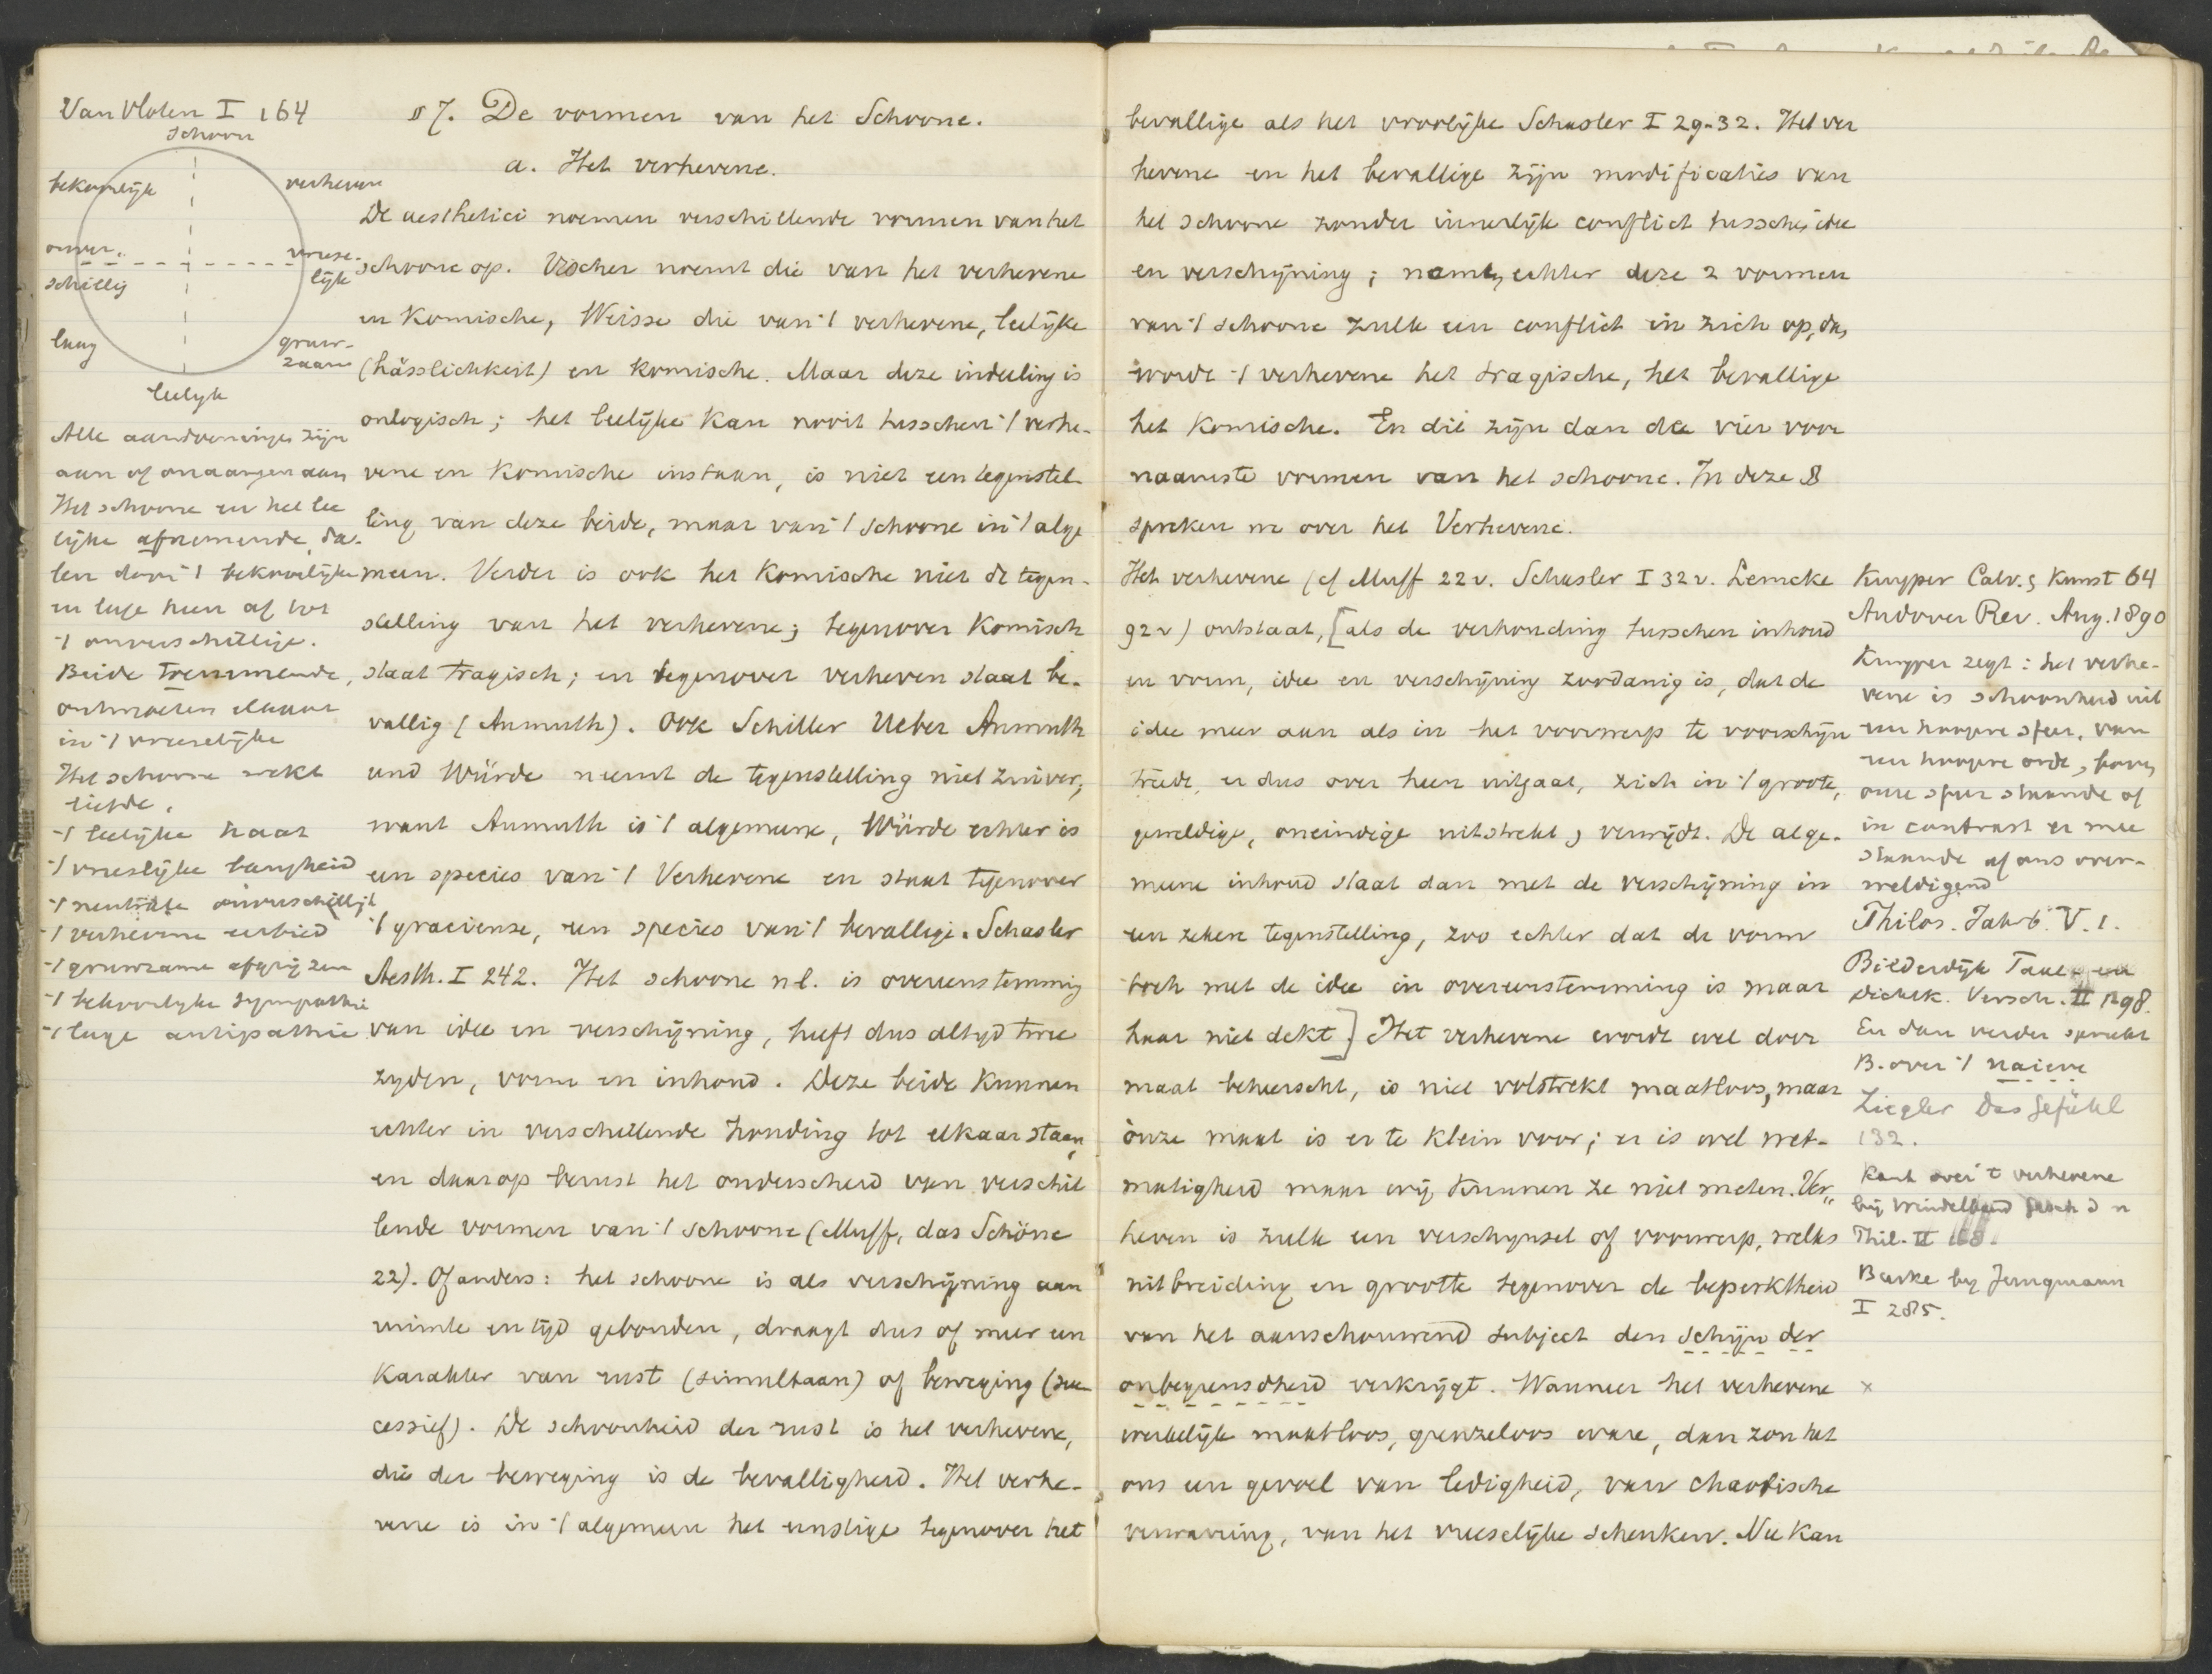 Van Vloten I 164
schoon
bekoorlijk
verheven
onver-
schillig
vreese-
lijk
laag
gruw-
zaam
leelijk
Alle aandoeningen zijn
aan of onaangenaam
Het schoone en het lee
lijke afnemende, da-
len door 't bekoorlijke
en lage heen af tot
't onverschillige.
Beide toenemende,
ontmoeten elkaar
in 't vreeselijke
Het schoone wekt
liefde.
't leelijke haat
't vreeslijke bangheid
't neutrale onverschilligh
't verhevene eerbied
't gruwzame afgrijzen
't bekoorlijke sympathie
't lage antipathie
§ 7. De vormen van het Schoone.
a. Het verhevene.
De aesthetici noemen verschillende vormen van het
schoone op. Vischer noemt die van het verhevene
en Komische, Weisse die van 't verhevene, leelijke
(hässlichkeit) en komische. Maar deze indeeling is
onlogisch; het leelijke kan nooit tusschen 't verhe-
vene en Komische instaan, is niet een tegenstel-
ling van deze beide, maar van 't schoone in 't alge
meen. Verder is ook het Komische niet de tegen-
stelling van het verhevene; tegenover Komisch
staat tragisch; en tegenover verheven staat be-
vallig (Anmuth). Ook Schiller Ueber Anmuth
und Würde neemt de tegenstelling niet zuiver,
want Anmuth is 't algemeene, Würde echter is
een species van 't Verhevene en staat tegenover
't gracieuse, een species van 't bevallige. Schasler
Aesth. I 242. Het schoone nl. is overeenstemming
van idee en verschijning, heeft dus altyd twee
zyden, vorm en inhoud. Deze beide Kunnen
echter in verschillende houding tot elkaar staan,
en daarop berust het onderscheid van verschil
lende vormen van 't schoone (Muff, das Schöne
22). Of anders: het schoone is als verschijning aan
ruimte en tijd gebonden, draagt dus of meer een
Karakter van rust (simultaan) of beweging (suc
cessief). De schoonheid der rust is het verhevene,
die der beweging is de bevalligheid. Het verhe-
vene is in 't algemeen het ernstige tegenover het
bevallige als het vroolijke Schasler I 29-32. Het ver
hevene en het bevallige zijn modificaties van
het schoone zonder innerlijk conflict tusschen idee
en verschijning; nemen echter deze 2 vormen
van 't schoone zulk een conflict in zich op, dan
wordt 't verhevene het tragische, het bevallige
het Komische. En dit zijn dan de vier voor
naamste vormen van het schoone. In deze §
spreken we over het Verhevene.
Het verhevene (cf Muff 22 v. Schasler I 32 v. Lemcke
92 v) ontstaat, [als de verhouding tusschen inhoud
en vorm, idee en verschijning zoodanig is, dat de
idee meer aan als in het voorwerp te voorschijn
treedt, er dus over heen uitgaat, zich in 't groote,
geweldige, oneindige uitstrekt, verwijdt. De alge-
meene inhoud staat dan met de verschijning in
een zekere tegenstelling, zoo echter dat de vorm
toch met de idee in overeenstemming is maar
haar niet dekt] Het verhevene wordt wel door
maat beheerscht, is niet volstrekt maatloos, maar
onze maat is er te klein voor; er is wel wet-
matigheid maar wij kunnen ze niet meten. Ver-
heven is zulk een verschynsel of voorwerp, welks
uitbreiding en grootte tegenover de beperktheid
van het aanschouwend subject den schijn der
onbegrensdheid verkrijgt. Wanneer het verhevene
werkelijk maatloos, grenzeloos ware, dan zou het
ons een gevoel van ledigheid, van chaotische
verwarring, van het vreeselijke schenken. Nu kan
Kuyper Calv. & Kunst 64
Andover Rev. Aug. 1890
Kuyper zegt: het verhe-
vene is schoonheid uit
een hoogere sfeer, van
een hoogere orde, boven
onze sfeer staande of
in contrast er mee
staande of ons over-
weldigend
Philos. Jahrb. V. 1.
Bilderdijk Taal- en
Dichtk. Versch. II 198.
En dan verder spreekt
B. over 't naieve
Ziegler Das Gefühl
132.
Kant over 't verhevene
bij Windelband Gesch d n
Phil. II 168.
Burke by Jungmann
I 285.
x